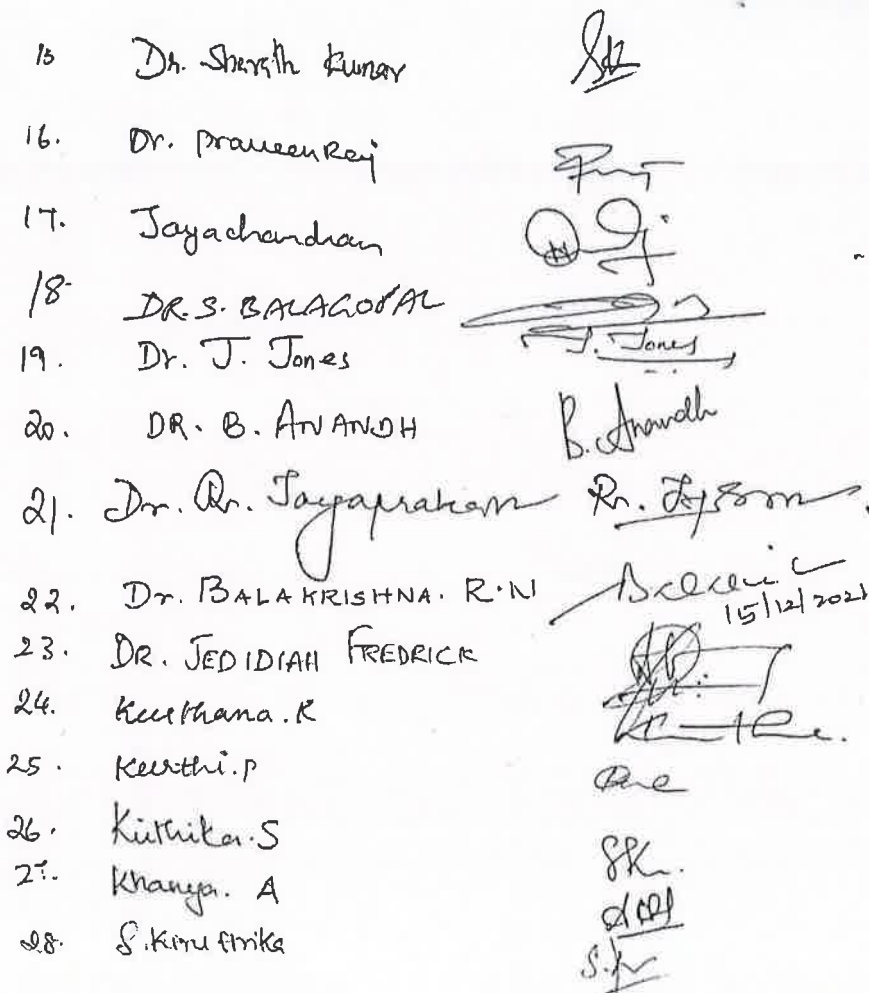 15 Dr. Sharath Kumar
16. Dr. Praveen Raj
17. Jayachandran
18 DR. S. BALAGOPAL
19. Dr. J. Jones J. Jones
20. DR. B. ANANDH B. Anandh
21. Dr. R. Jayaprakash
22. Dr. BALAKRISHNA. R.N
15/12/2021
23. DR. JEDIDIAH FREDRICK
24. Keerthana. K
25. Keerthi. P
26. Kirthika. S SK.
27. Khanya. A
28. S. Kiruthika